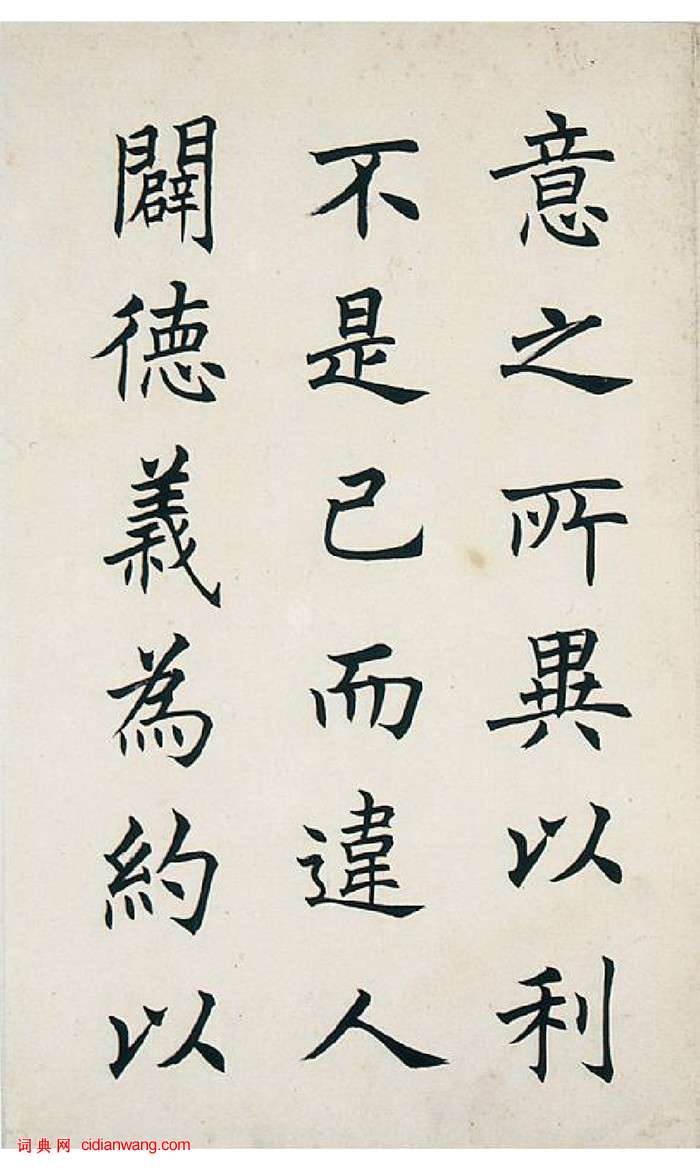 意之所異以利
不是已而違人
闢德義為約以
词典网 cidianwang.com